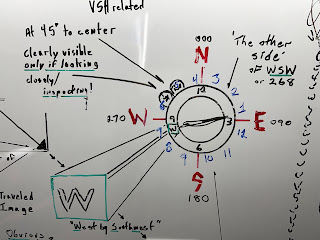 VSH related
At 45° to center
Clearly visible
only if looking
closely/
inspecting!
000
N
'The other
side'
of WSW
or 268
270
W
E
090
4
3
2
1
12
11
10
9
8
7
12
3
6
9
S
180
of
Traveled
Image
W
"West by Southwest"
Obvious